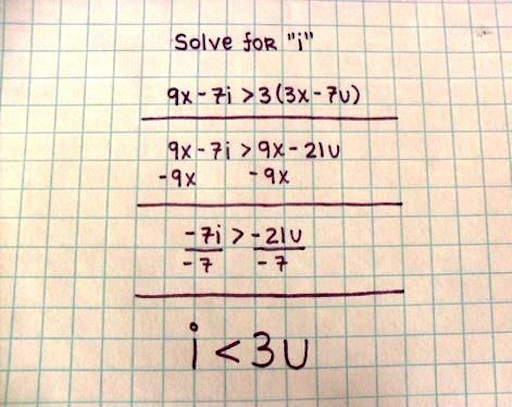 Solve for "i"
9x - 7i > 3(3x - 7u)
9x - 7i > 9x - 21u
-9x -9x
-7i > -21u
-7 -7
i < 3u